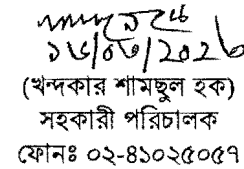 ১৬/০৩/২০২৬
(খন্দকার শামছুল হক)
সহকারী পরিচালক
ফোনঃ ০২-৪১০২৫০৫৭